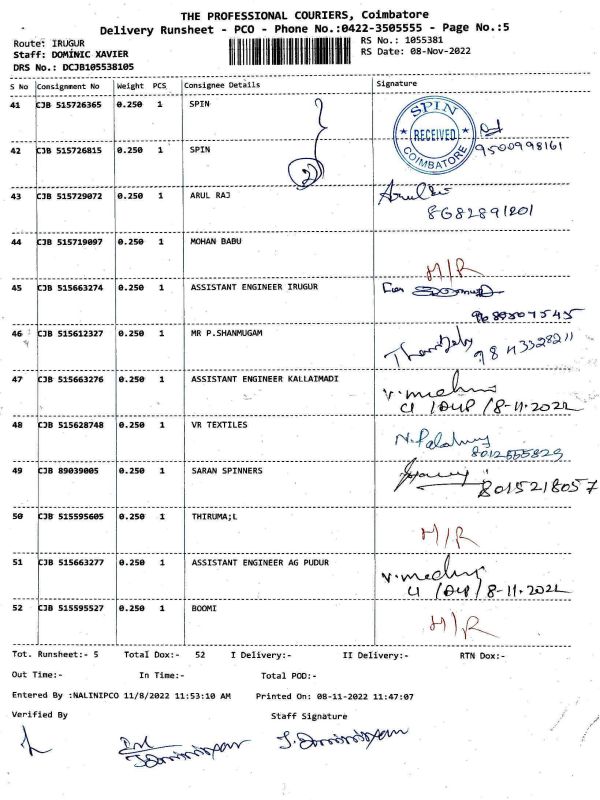 THE PROFESSIONAL COURIERS, Coimbatore
Delivery Runsheet - PCO - Phone No.:0422-3505555 - Page No.:5
Route: IRUGUR
Staff: DOMINIC XAVIER
DRS No.: DCJB105538105
RS No.: 1055381
RS Date: 08-Nov-2022
S No Consignment No Weight PCS Consignee Details Signature
41 CJB 515726365 0.250 1 SPIN
SPIN RECEIVED COIMBATORE
9500998161
42 CJB 515726815 0.250 1 SPIN
2
43 CJB 515729072 0.250 1 ARUL RAJ
8682891201
44 CJB 515719097 0.250 1 MOHAN BABU
M/R
45 CJB 515663274 0.250 1 ASSISTANT ENGINEER IRUGUR
46 CJB 515612327 0.250 1 MR P.SHANMUGAM
47 CJB 515663276 0.250 1 ASSISTANT ENGINEER KALLAIMADI
/8-11-2022
48 CJB 515628748 0.250 1 VR TEXTILES
49 CJB 89039005 0.250 1 SARAN SPINNERS
8015218057
50 CJB 515595605 0.250 1 THIRUMA;L
M/R
51 CJB 515663277 0.250 1 ASSISTANT ENGINEER AG PUDUR
/8-11-2022
52 CJB 515595527 0.250 1 BOOMI
M/R
Tot. Runsheet:- 5 Total Dox:- 52 I Delivery:- II Delivery:- RTN Dox:-
Out Time:- In Time:- Total POD:-
Entered By :NALINIPCO 11/8/2022 11:53:10 AM Printed On: 08-11-2022 11:47:07
Verified By Staff Signature